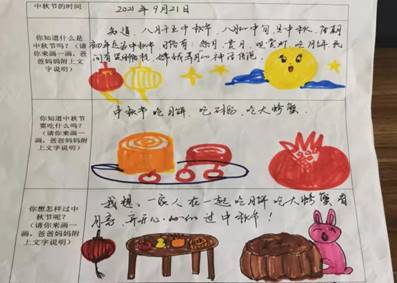 中秋节的时间
2021年9月21日
你知道什么是
中秋节吗？（请
你来画一画，爸
爸妈妈附上文
字说明）
知道，八月十五中秋节，八月的中间是中秋，
中秋节 赏月 吃月饼
你知道中秋节
要吃什么吗？
（请你来画一
画，爸爸妈妈附
上文字说明）
中秋节吃月饼、吃石榴、吃大螃蟹。
你想怎样过中
秋节呢？
（请你来画一
画，爸爸妈妈附
上文字说明）
我想，一家人在一起吃月饼吃大螃蟹 看
月亮，开开心心的过中秋节！